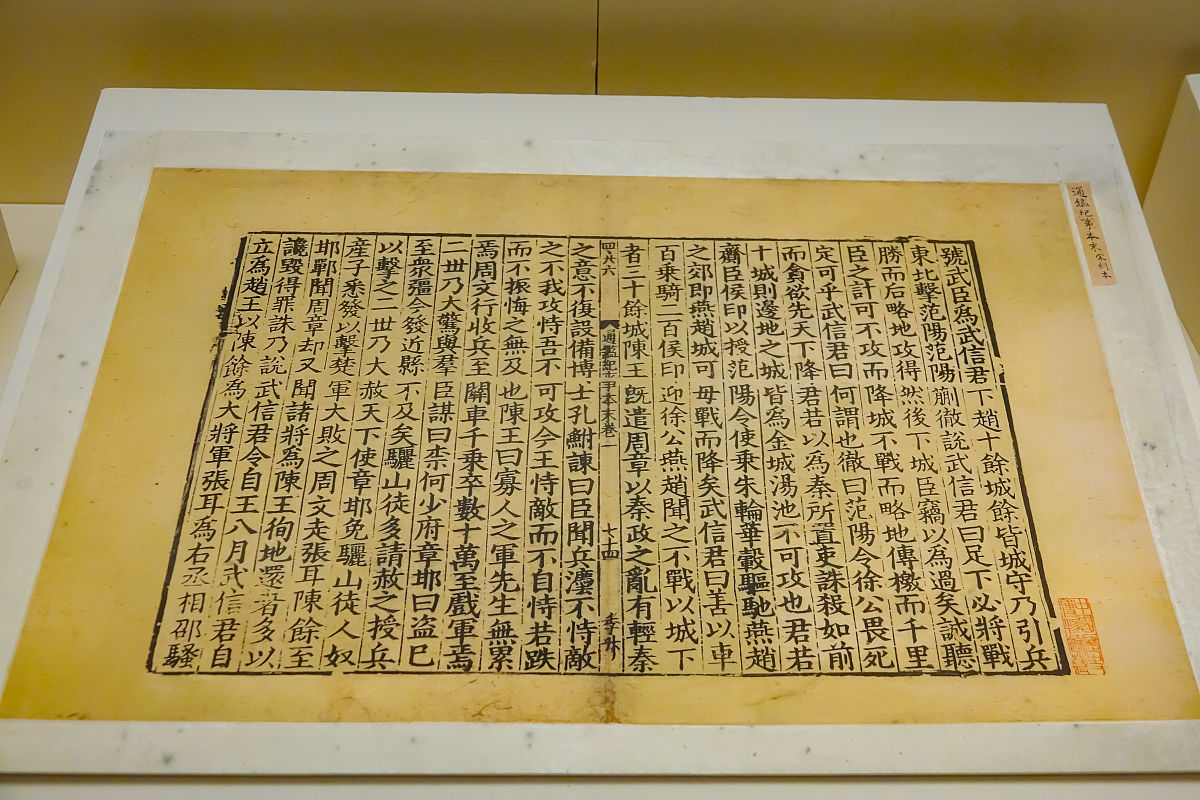 通鑑紀事本末宋刊本
號武臣為武信君下趙十餘城餘皆城守乃引兵
東北擊范陽范陽蒯徹說武信君曰足下必將戰
勝而后略地攻得然後下城臣竊以為過矣誠聽
臣之計可不攻而降城不戰而略地傳檄而千里
定可乎武信君曰何謂也徹曰范陽令徐公畏死
而貪欲先天下降君若以為秦所置吏誅殺如前
十城則邊地之城皆為金城湯池不可攻也君若
齎臣侯印以授范陽令使乘朱輪華轂驅馳燕趙
之郊即燕趙城可毋戰而降矣武信君曰善以車
百乘騎二百侯印迎徐公燕趙聞之不戰以城下
者三十餘城陳王既遣周章以秦政之亂有輕秦
通鑑紀事本末卷一
七十四
之意不復設備博士孔鮒諫曰臣聞兵灋不恃敵
之不我攻恃吾不可攻今王恃敵而不自恃若跌
而不振悔之無及也陳王曰寡人之軍先生無累
焉周文行收兵至關車千乘卒數十萬至戲軍焉
二世乃大驚與羣臣謀曰柰何少府章邯曰盜已
至衆彊今發近縣不及矣驪山徒多請赦之授兵
以擊之二世乃大赦天下使章邯免驪山徒人奴
産子悉發以擊楚軍大敗之周文走張耳陳餘至
邯鄲聞周章却又聞諸將為陳王徇地還者多以
讒毀得罪誅乃說武信君令自王八月武信君自
立為趙王以陳餘為大將軍張耳為右丞相邵騷